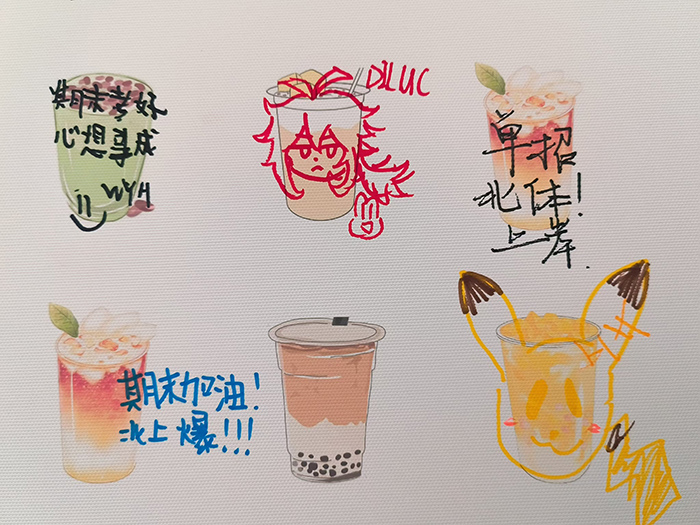 期末考好
心想事成
WYH
DILUC
单招
北体!
上岸.
期末加油!
北上爆!!!